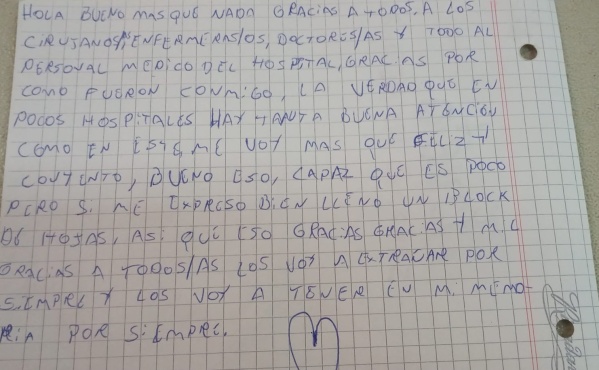 HOLA BUENO MAS QUE NADA GRACIAS A TODOS, A LOS
CIRUJANOS/AS, ENFERMERAS/OS, DOCTORES/AS Y TODO AL
PERSONAL MEDICO DEL HOSPITAL, GRACIAS POR
COMO FUERON CONMIGO, LA VERDAD QUE EN
POCOS HOSPITALES HAY TANTA BUENA ATENCION
COMO EN ESTE, ME VOY MAS QUE FELIZ Y
CONTENTO, BUENO ESO, CAPAZ QUE ES POCO
PERO SI ME EXPRESO BIEN LLENO UN BLOCK
DE HOJAS, ASI QUE ESO GRACIAS GRACIAS Y MIL
GRACIAS A TODOS/AS LOS VOY A EXTRAÑAR POR
SIEMPRE Y LOS VOY A TENER EN MI MEMO-
RIA POR SIEMPRE.